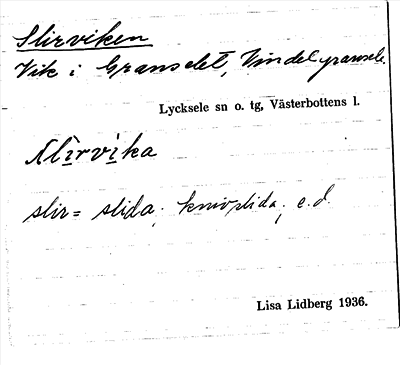 Slirviken
Vik i Granselet, Vindelgransele.
Lycksele sn o. tg, Västerbottens l.
slìrvìka
slir = slida; knivslida; e.d.
Lisa Lidberg 1936.